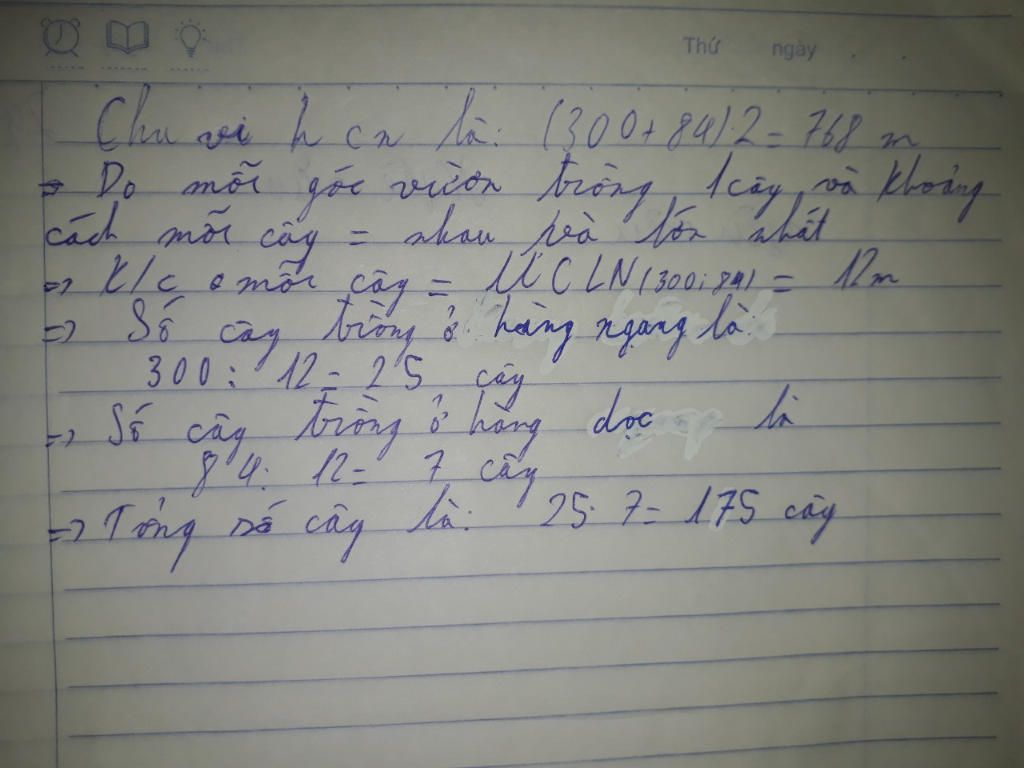 Thứ ngày . .
Chu vi h cn là: (300+84).2=768 m
=> Do mỗi góc vườn trồng 1 cây và khoảng
cách mỗi cây = nhau và lớn nhất
=> K/c mỗi cây = ƯCLN(300;84) = 12m
=> Số cây trồng ở hàng ngang là:
300: 12= 25 cây
=> Số cây trồng ở hàng dọc là
84: 12= 7 cây
=> Tổng số cây là: 25.7= 175 cây